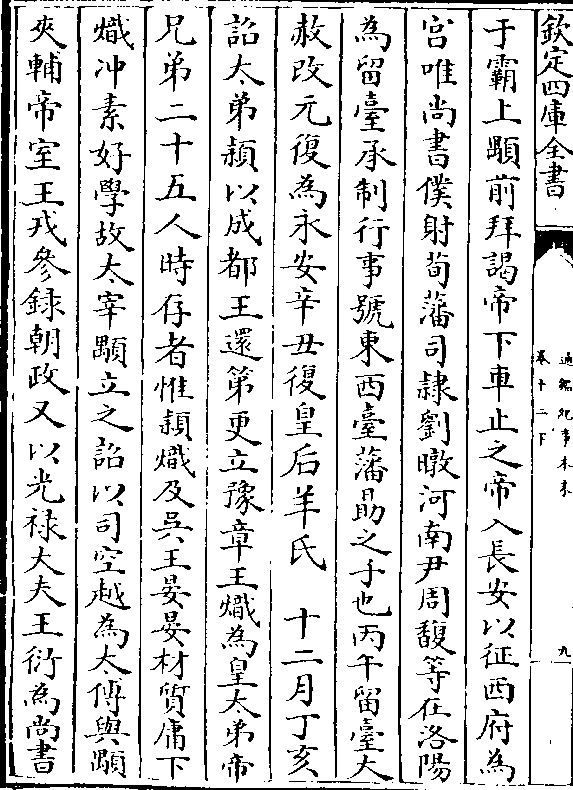 欽定四庫全書
通鑑紀事本末
卷十二下
九
于霸上顒前拜謁帝下車止之帝入長安以征西府為
宫唯尚書僕射荀藩司隸劉暾河南尹周馥等在洛陽
為留臺承制行事號東西臺藩勗之子也丙午留臺大
赦改元復為永安辛丑復皇后羊氏　十二月丁亥
詔太弟穎以成都王還第更立豫章王熾為皇太弟帝
兄弟二十五人時存者惟穎熾及吳王晏晏材質庸下
熾冲素好學故太宰顒立之詔以司空越為太傅與顒
夾輔帝室王戎參録朝政又以光禄大夫王衍為尚書